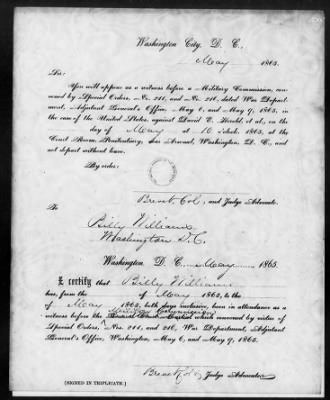 Washington City, D. C.,
May 1865.
To:
You will appear as a witness before a Military Commission, con-
vened by Special Orders, No. 211, and No. 216, dated War Depart-
ment, Adjutant General's Office, May 6, and May 9, 1865, in
the case of the United States, against David E. Herold, et al., on the
day of May at 10 o'clock, 1865, at
the Court Room, Penitentiary, Arsenal, Washington, D. C., and
not depart without leave.
By order:
Brevet Col, and Judge Advocate.
To
Billy Williams
Washington D.C.
Washington, D. C. May 1865.
I certify that Billy Williams
has, from the of May 1865, to the
of May 1865, both days inclusive, been in attendance as a
Military Commission
witness before the which convened by virtue of
Special Orders, Nos. 211, and 216, War Department, Adjutant
General's Office, Washington, May 6, and May 9, 1865.
Brevet Col & Judge Advocate
[SIGNED IN TRIPLICATE.]